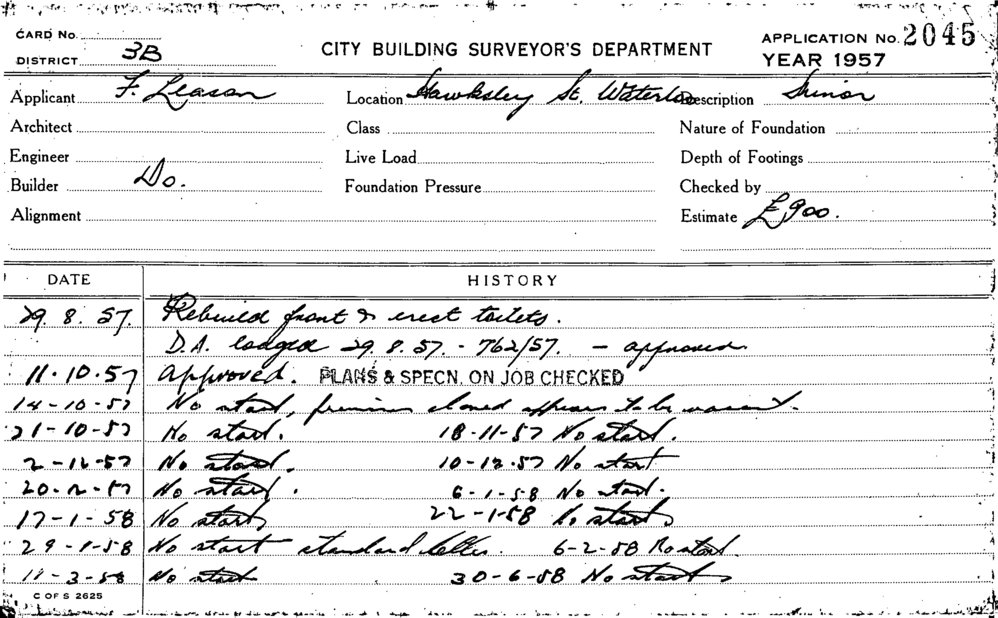 CARD No.
DISTRICT 3B
CITY BUILDING SURVEYOR'S DEPARTMENT
APPLICATION No. 2045
YEAR 1957
Applicant F. Leason Location Hawksley St. Waterloo Description Minor
Architect Class Nature of Foundation
Engineer Live Load Depth of Footings
Builder Do. Foundation Pressure Checked by
Alignment Estimate £900.
DATE HISTORY
29. 8. 57. Rebuild front & erect toilets.
D.A. lodged 29. 8. 57. - 762/57. - approved.
11.10.57 Approved. PLANS & SPECN. ON JOB CHECKED
14-10-57 No start, premises closed appears to be vacant.
21-10-57 No start. 18-11-57 No start.
2-12-57 No start. 10-12-57 No start
20-12-57 No start. 6-1-58 No start.
17-1-58 No start 22-1-58 No start
29-1-58 No start standard letter. 6-2-58 No start.
11-3-58 No start 30-6-58 No start
C OF S 2625